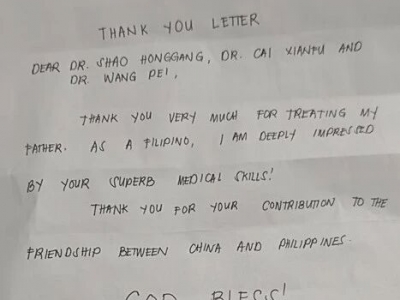 THANK YOU LETTER
DEAR DR. SHAO HONGGANG, DR. CAI XIANFU AND
DR. WANG PEI,
THANK YOU VERY MUCH FOR TREATING MY
FATHER. AS A FILIPINO, I AM DEEPLY IMPRESSED
BY YOUR SUPERB MEDICAL SKILLS!
THANK YOU FOR YOUR CONTRIBUTION TO THE
FRIENDSHIP BETWEEN CHINA AND PHILIPPINES.
GOD BLESS!